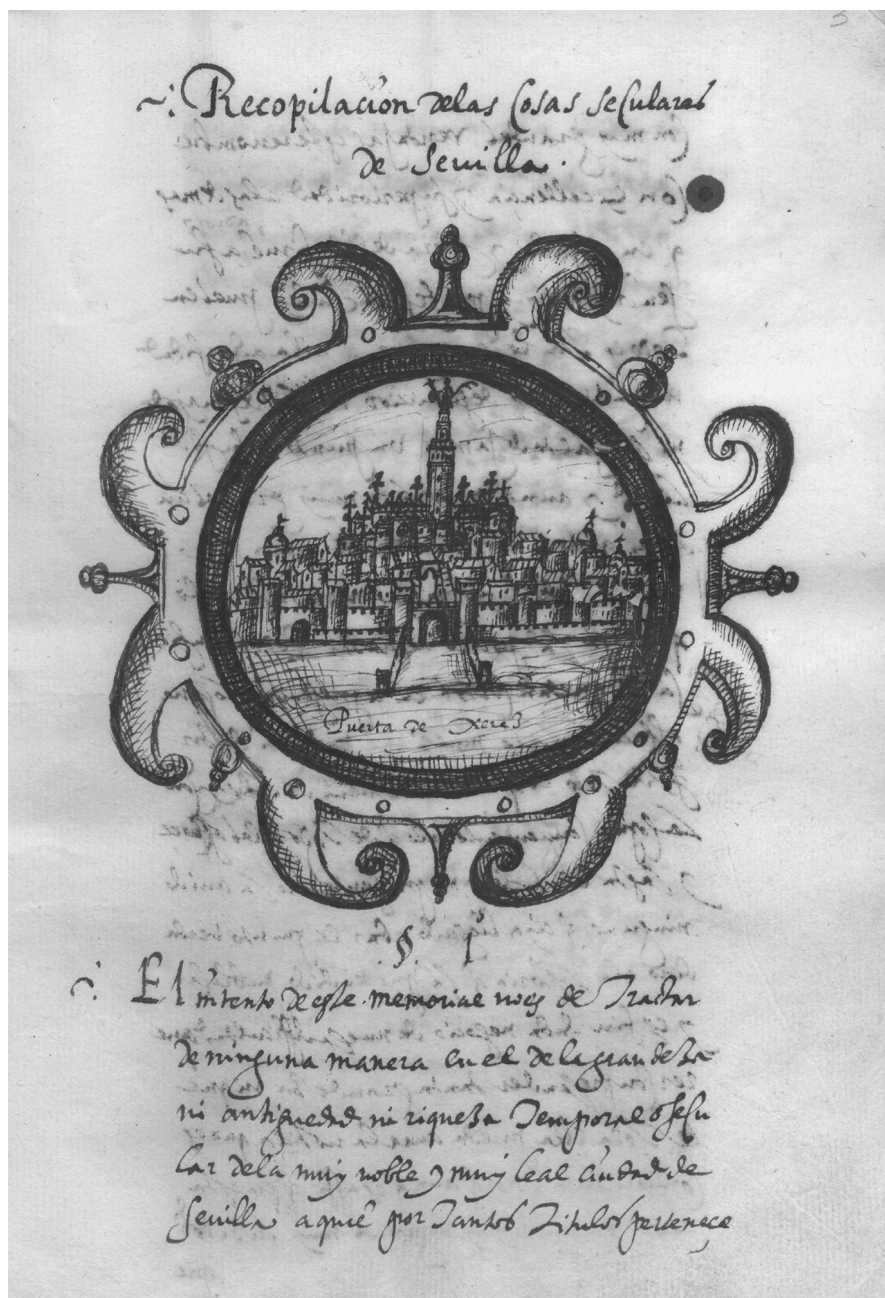 Recopilaçion delas Cosas seCulares
de Sevilla.
Puerta de Xerez
§ 1
El intento de este memorial no es de Tractar
de ninguna manera en el de la grandeza
ni antiguedad ni riqueza Temporal o seCu
lar dela muy noble y muy leal ciudad de
Sevilla a quiē por Tantos Titulos perteneçe